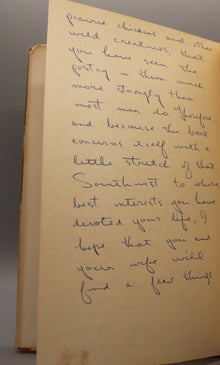 prairie chickens and other
wild creatures, that
you have seen the
poetry in them much
more strongly than
most men do. Therefore,
and because the book
concerns itself with a
little stretch of that
Southwest to whose
best interests you have
devoted your life, I
hope that you and
your wife will
find a few things